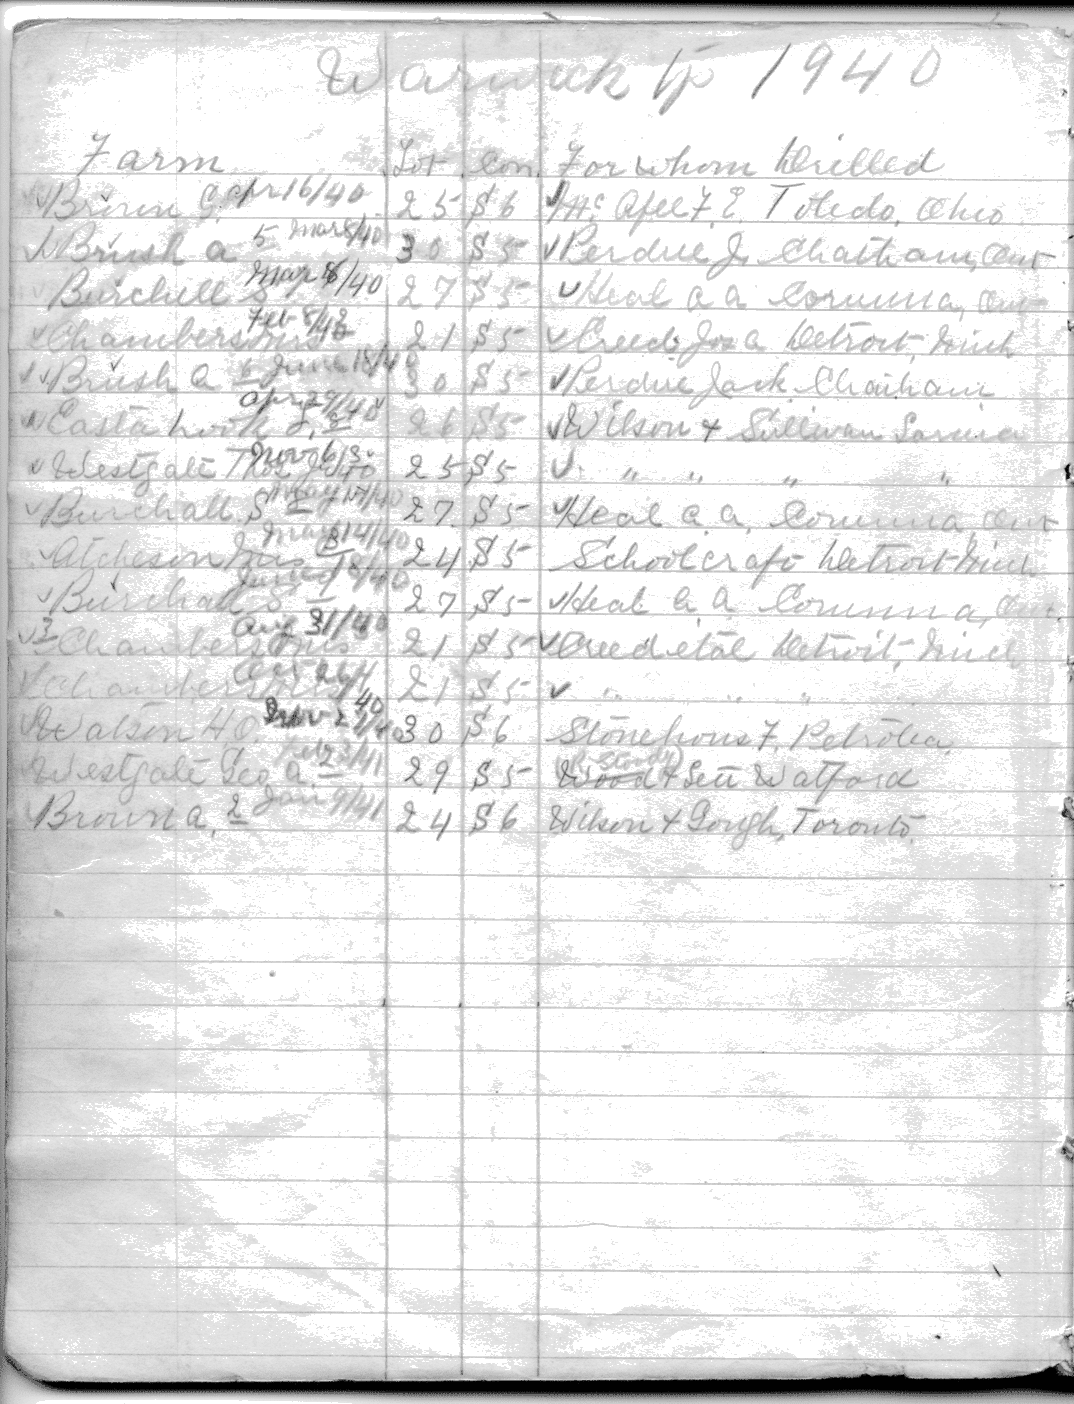 Warwick Tp 1940
Farm Lot Con. For whom Drilled
✓✓ Brown C. Apr 16/40 25 S 6 ✓ McAfee F. E. Toledo, Ohio
✓✓ Brush A 5 Mar 8/40 30 S 5 ✓ Perdue J. Chatham, Ont
Burchell S Mar 8/40 27 S 5 ✓ Heal A A Corunna, Ont
✓ Chambers Feb 8/40 21 S 5 ✓ Creed Jos A Detroit, Mich
✓✓ Brush A 6 June 18/40 30 S 5 ✓ Perdue Jack Chatham
✓ Eastabrook 2 Apr 29/40 26 S 5 ✓ Wilson & Sullivan Sarnia
✓ Westgate Thos 25 S 5 ✓ " " " "
✓ Burchall S May 17/40 27 S 5 ✓ Heal A. A. Corunna, Ont
✓ Atcheson May 14/40 24 S 5 Schoolcraft Detroit Mich
✓ Burchall S 18/40 27 S 5 ✓ Heal A. A. Corunna, Ont.
✓ 3 Chambers Aug 31/40 21 S 5 ✓ Creed etal Detroit, Mich
✓ Chambers Oct 26/40 21 S 5 ✓ " " "
✓ Watson H O. Nov 2 30 S 6 Stonehous F. Petrolea,
Westgate Geo A 29 S 5 Wood & Sett Watford
Brown A, 2 Jan 9/41 24 S 6 Wilson & Gough, Toronto,